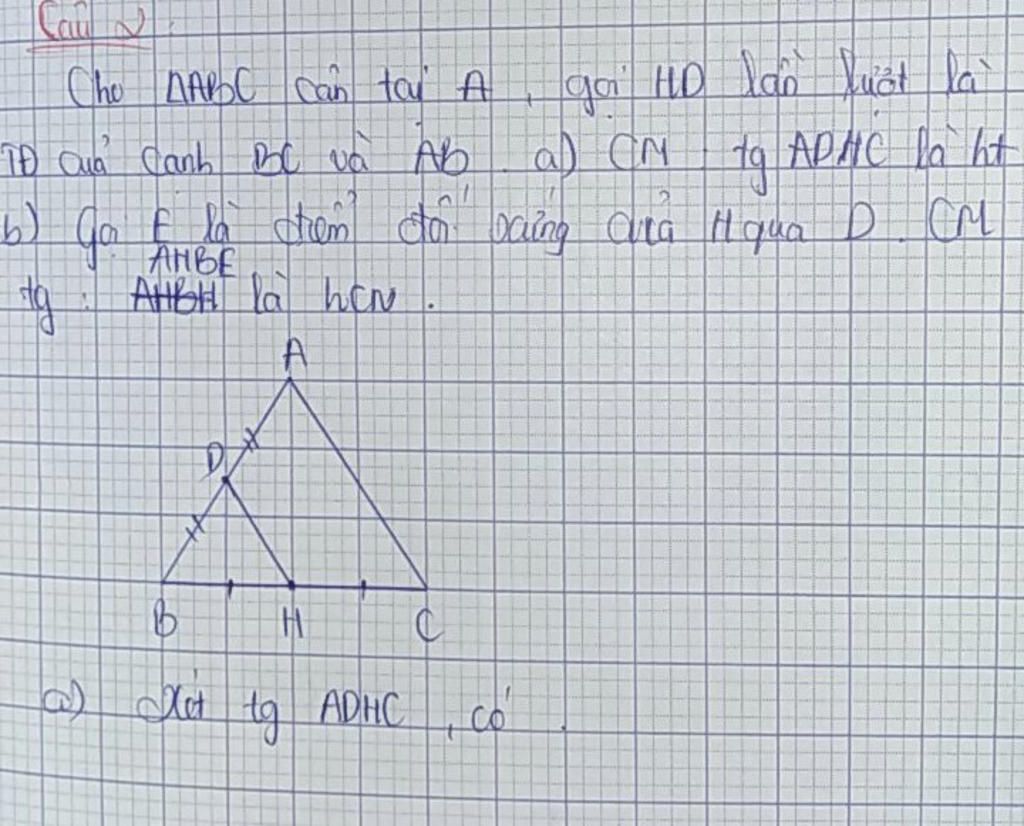 Câu 2:
Cho ΔABC cân tại A, gọi HD lần lượt là
TĐ của cạnh BC và AB. a) CM tg ADHC là ht
b) Gọi E là điểm đối xứng của H qua D. CM
AHBE
tg: AHBH là hCN.
A
D
B H C
a) Xét tg ADHC, có.